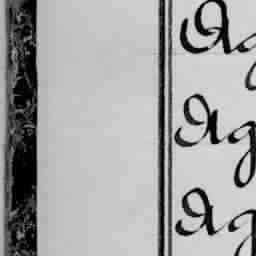 Ag
Ag
Ag